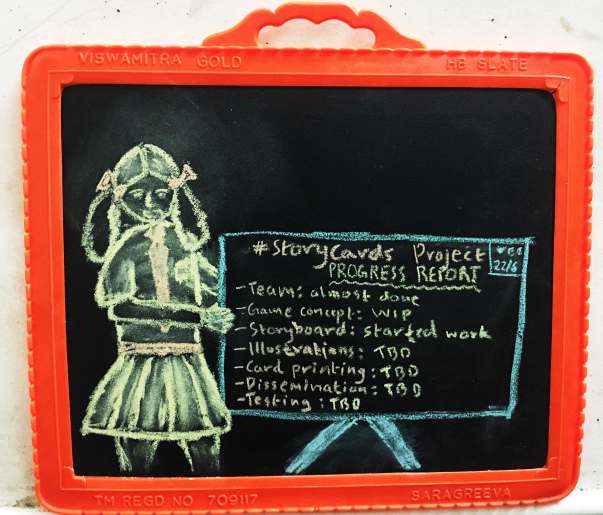 VISWAMITRA GOLD
HB SLATE
#StoryCards Project
WED
22/6
PROGRESS REPORT
-Team: almost done
-Game concept: WIP
-Storyboard: started work
-Illustrations: TBD
-Card printing: TBD
-Dissemination: TBD
-Testing: TBD
TM REGD NO 709117
SARAGREEVA